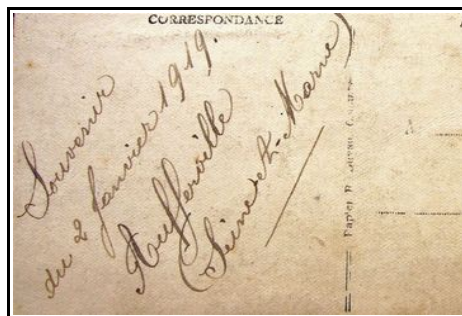 CORRESPONDANCE
Souvenir
du 2 Janvier 1919.
Aufferville
(Seine-et-Marne)
Papier